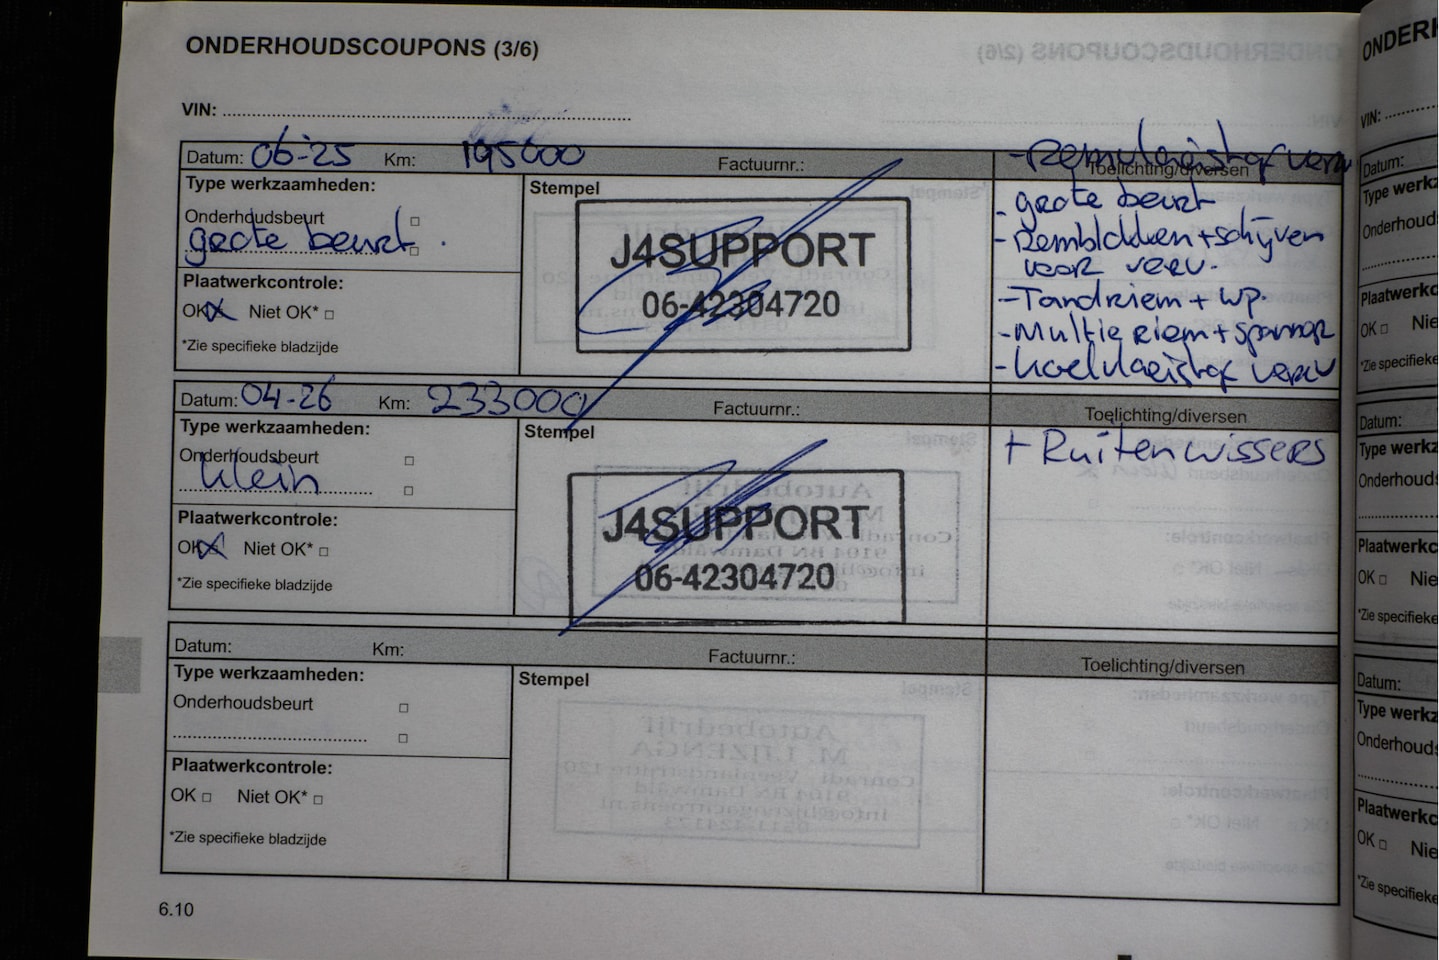 ONDERHOUDSCOUPONS (3/6)
VIN:
Datum: 06-25 Km: 195000 Factuurnr.: Toelichting/diversen
- Remvloeistof verv
Type werkzaamheden:
Stempel
Onderhoudsbeurt
grote beurt.
J4SUPPORT
06-42304720
- grote beurt
- Remblokken + schijven
voor verv.
- Tandriem + WP.
- Multieriem + spanner
- Koelvloeistof verv
Plaatwerkcontrole:
OK Niet OK*
*Zie specifieke bladzijde
Datum: 04-26 Km: 233000 Factuurnr.: Toelichting/diversen
Type werkzaamheden:
Stempel
Onderhoudsbeurt
klein
J4SUPPORT
06-42304720
+ Ruitenwissers
Plaatwerkcontrole:
OK Niet OK*
*Zie specifieke bladzijde
Datum: Km: Factuurnr.: Toelichting/diversen
Type werkzaamheden:
Stempel
Onderhoudsbeurt
Plaatwerkcontrole:
OK Niet OK*
*Zie specifieke bladzijde
6.10
ONDERH
VIN:
Datum:
Type werkz
Onderhouds
Plaatwerkc
OK Nie
*Zie specifieke
Datum:
Type werkz
Onderhouds
Plaatwerkc
OK Nie
*Zie specifieke
Datum:
Type werkz
Onderhouds
Plaatwerkc
OK Nie
*Zie specifieke